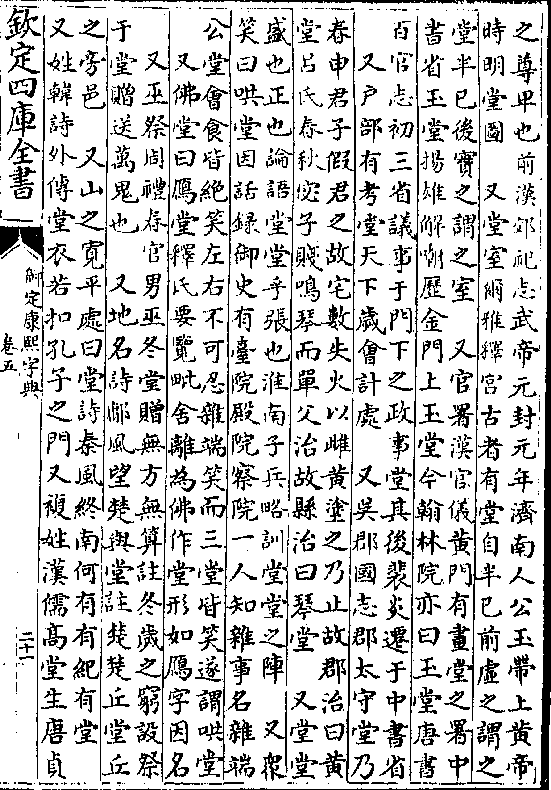 之尊卑也前漢郊祀志武帝元封元年濟南人公玉帶上黃帝
時明堂圖　又堂室爾雅釋宮古者有堂自半已前虛之謂之
堂半已後實之謂之室　又官署漢官儀黃門有畫堂之署中
書省玉堂揚雄解嘲歷金門上玉堂今翰林院亦曰玉堂唐書
百官志初三省議事于門下之政事堂其後裴炎遷于中書省
又戸部有考堂天下歲會計處　又吳郡國志郡太守堂乃
春申君子假君之故宅數失火以雌黃塗之乃止故郡治曰黃
堂吕氏春秋宓子賤鳴琴而單父治故縣治曰琴堂　又堂堂
盛也正也論語堂堂乎張也淮南子兵略訓堂堂之陣　又衆
笑曰哄堂因話録御史有臺院殿院察院一人知雜事名雜端
公堂會食皆絶笑左右不可忍雜端笑而三堂皆笑遂謂哄堂
又佛堂曰鴈堂釋氏要覽毗舍離為佛作堂形如鴈字因名
又巫祭周禮春官男巫冬堂贈無方無算註冬歲之窮設祭
于堂贈送萬鬼也　又地名詩鄘風望楚與堂註楚楚丘堂丘
之旁邑　又山之寛平處曰堂詩秦風終南何有有紀有堂
又姓韓詩外傳堂衣若扣孔子之門又複姓漢儒髙堂生唐貞
欽定四庫全書
御定康熙字典
卷五
二十一